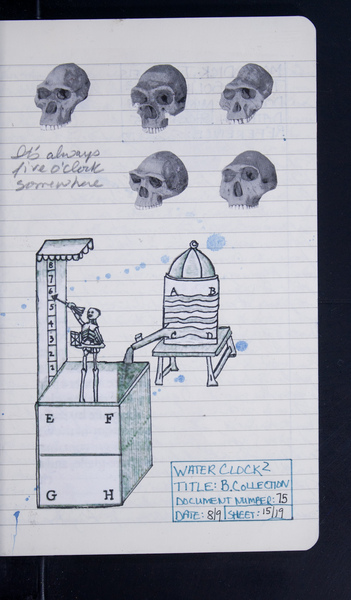 It's always
five o'clock
somewhere
8
7
6
5
4
3
2
A B
C D
E F
G H
WATER CLOCK²
TITLE: B. COLLECTION
DOCUMENT NUMBER: 75
DATE: 8/9 SHEET: 15/19